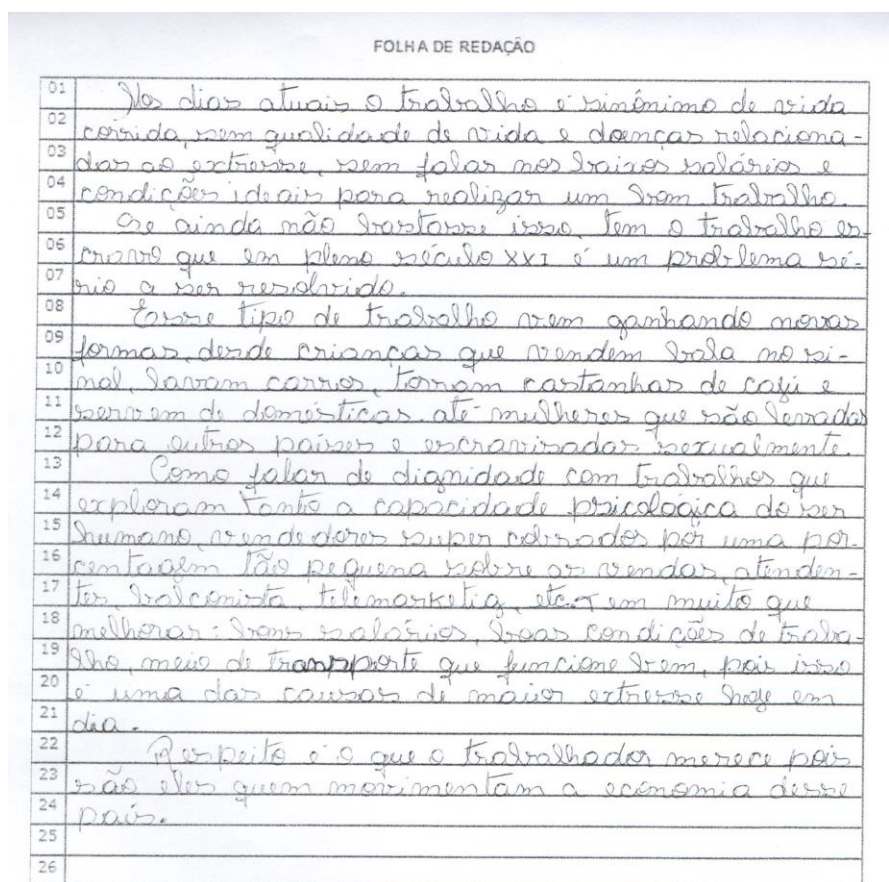 FOLHA DE REDAÇÃO
01 Nos dias atuais o trabalho é sinônimo de vida
02 corrida, sem qualidade de vida e doenças relaciona-
03 das ao extresse, sem falar nos baixos salários e
04 condições ideais para realizar um bom trabalho.
05 Se ainda não bastasse isso, tem o trabalho es-
06 cravo que em pleno século XXI é um problema sé-
07 rio a ser resolvido.
08 Esse tipo de trabalho vem ganhando novas
09 formas, desde crianças que vendem bala no si-
10 nal, lavam carros, torram castanhas de cajú e
11 servem de domésticas até mulheres que são levadas
12 para outros países e escravisadas sexualmente.
13 Como falar de dignidade com trabalhos que
14 exploram tanto a capacidade psicológica do ser
15 humano, vendedores super cobrados por uma por-
16 centagem tão pequena sobre as vendas, atenden-
17 tes, balconista, telemarketig, etc. Tem muito que
18 melhorar: bons salários, boas condições de traba-
19 lho, meio de transpporte que funcione bem, pois isso
20 é uma das causas de maior extresse hoje em
21 dia.
22 Respeito é o que o trabalhador merece pois
23 são eles quem movimentam a economia desse
24 país.
25
26